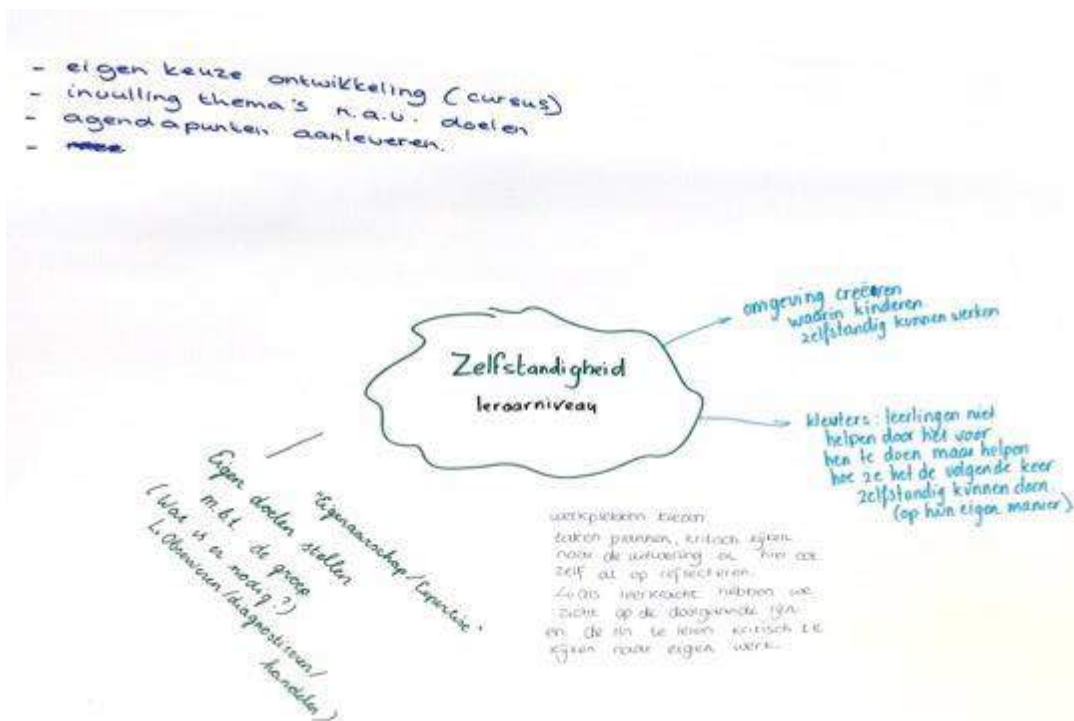 - eigen keuze ontwikkeling (cursus)
- invulling thema's n.a.v. doelen
- agendapunten aanleveren.
-
omgeving creëren
waarin kinderen
zelfstandig kunnen werken
Zelfstandigheid
leraarniveau
kleuters: leerlingen niet
helpen door het voor
hen te doen maar helpen
hoe ze het de volgende keer
zelfstandig kunnen doen
(op hun eigen manier)
Eigen doelen stellen
m.b.t. de groep
(Wat is er nodig?)
↳ Observeren/diagnosticeren/
handelen)
"Eigenaarschap/Expertise"
werkplekken kiezen
taken plannen, kritisch kijken
naar de uitvoering en hier ook
zelf op reflecteren.
↳ als leerkracht hebben we
zicht op de doorgaande lijn
en de lln te leren kritisch te
kijken naar eigen werk.